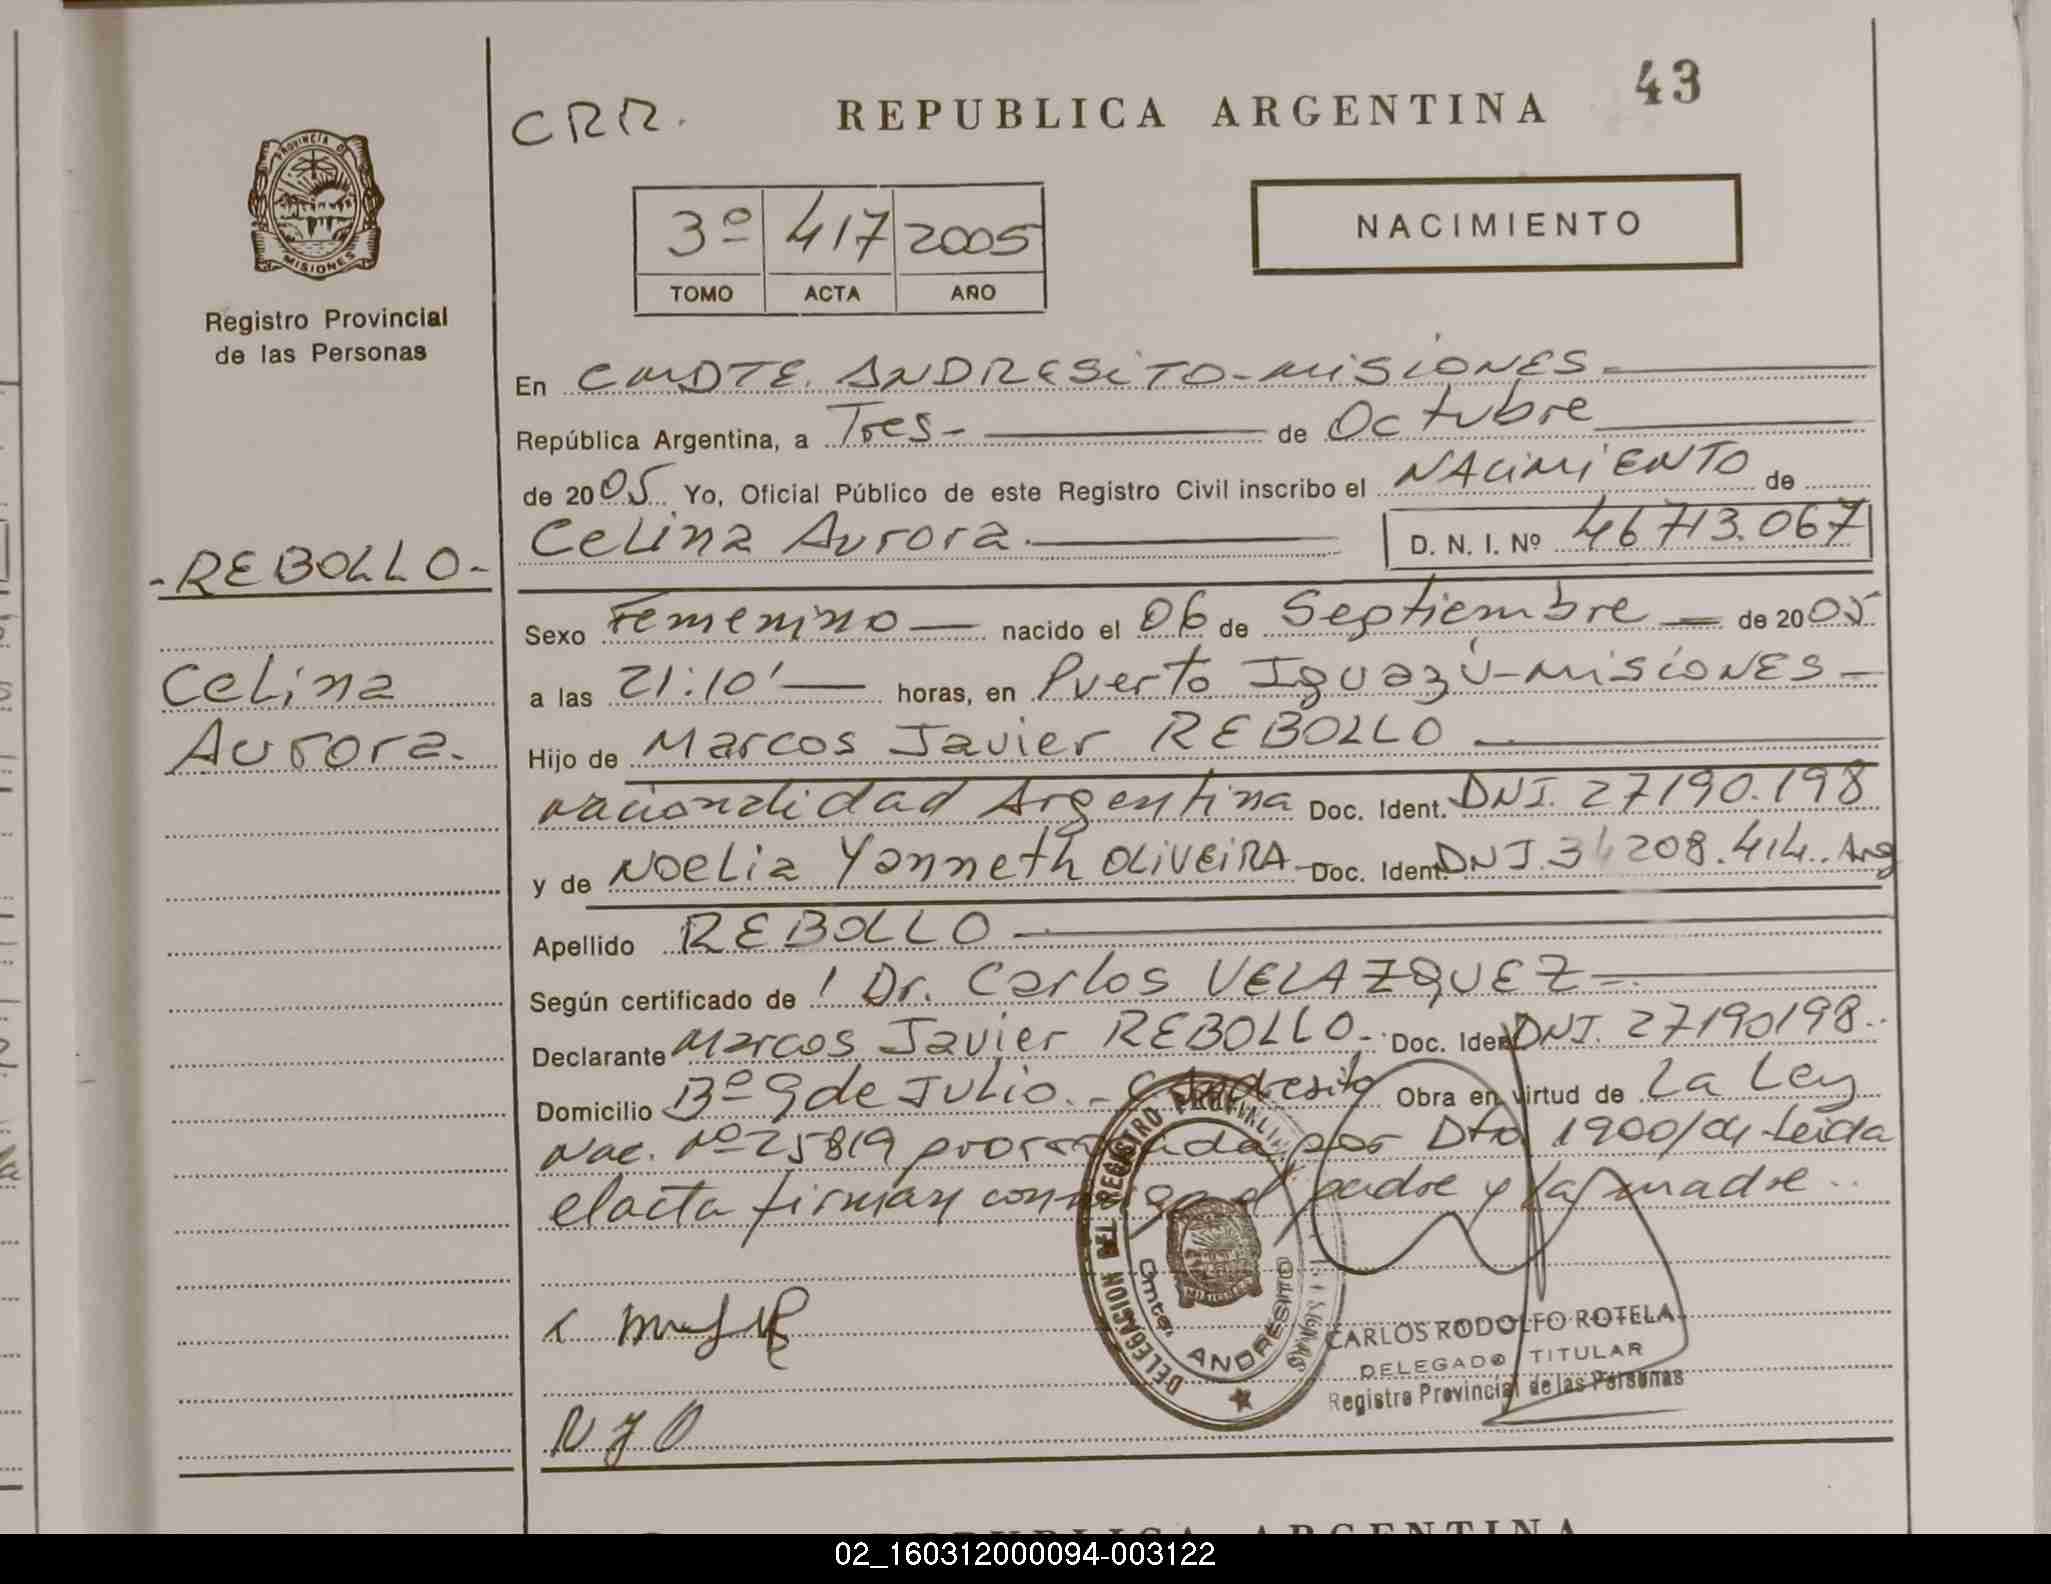 43
CRR.
REPUBLICA ARGENTINA
PROVINCIA DE
MISIONES
Registro Provincial
de las Personas
3º 417 2005
TOMO ACTA AÑO
NACIMIENTO
En CMDTE. ANDRESITO-MISIONES
República Argentina, a Tres- de Octubre
de 2005 Yo, Oficial Público de este Registro Civil inscribo el NACIMIENTO de
Celina Aurora.
D. N. I. Nº 46713.067
-REBOLLO-
Celina
Aurora.
Sexo Femenino nacido el 06 de Septiembre de 2005
a las 21:10' horas, en Puerto Iguazú-MISIONES
Hijo de Marcos Javier REBOLLO
nacionalidad Argentina Doc. Ident. DNI. 27190.198
y de NOELIA Yanneth OLIVEIRA Doc. Ident. DNI.34208.414. Arg
Apellido REBOLLO
Según certificado de Dr. Carlos VELAZQUEZ
Declarante Marcos Javier REBOLLO- Doc. Ident DNI. 27190198.
Domicilio Bº 9 de JULIO.- C. Andresito Obra en virtud de La Ley
Nac. Nº25819 prorrogada por Dto 1900/04 leida
el acta firman conmigo el padre y la madre..
NJO
DELEGACION DEL REGISTRO PROVINCIAL
Cmte. ANDRESITO
CARLOS RODOLFO ROTELA
DELEGADO TITULAR
Registro Provincial de las Personas
REPUBLICA ARGENTINA
02_160312000094-003122